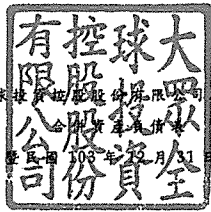 大眾全
球投資
控股股份
有限公司
球投資控股股份有限公司
合併資產負債表
民國 103 年 12 月 31 日